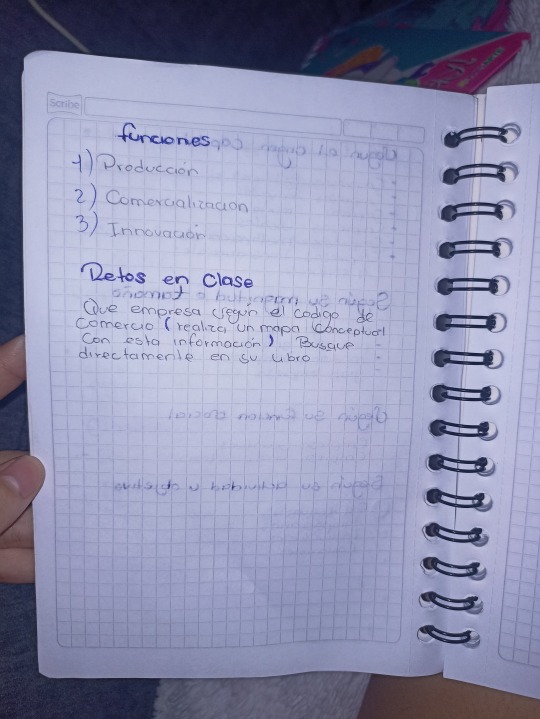 Scribe
funciones
1) Producción
2) Comercialización
3) Innovación
Retos en Clase
Que empresa según el codigo de
Comercio (realiza un mapa Conceptual
Con esta información) Busque
directamente en su libro